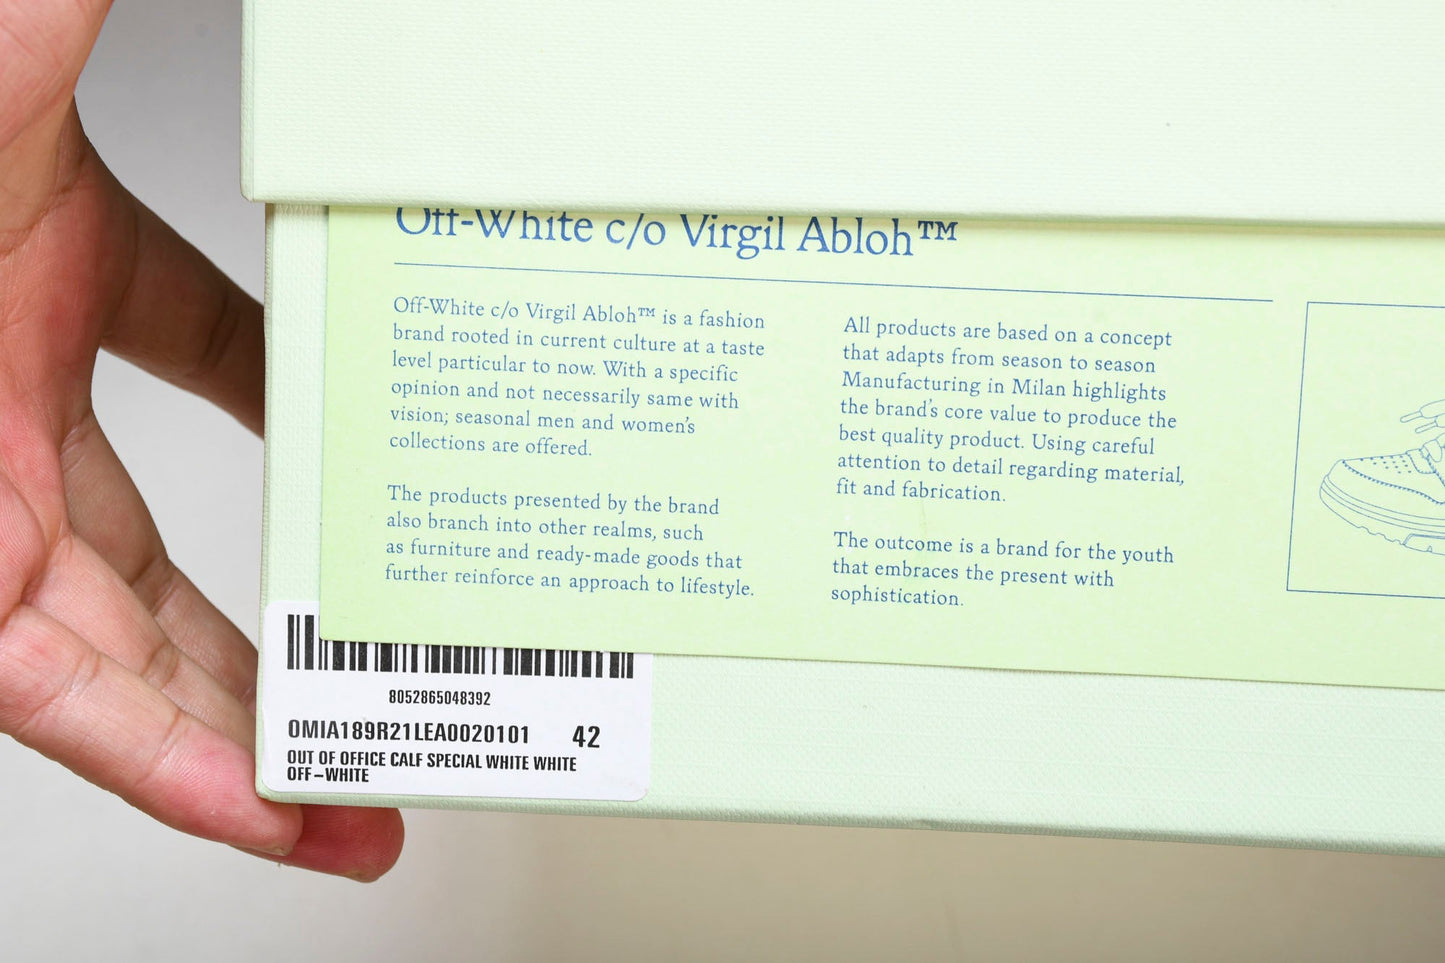 Off-White c/o Virgil Abloh™
Off-White c/o Virgil Abloh™ is a fashion
brand rooted in current culture at a taste
level particular to now. With a specific
opinion and not necessarily same with
vision; seasonal men and women's
collections are offered.
The products presented by the brand
also branch into other realms, such
as furniture and ready-made goods that
further reinforce an approach to lifestyle.
All products are based on a concept
that adapts from season to season
Manufacturing in Milan highlights
the brand's core value to produce the
best quality product. Using careful
attention to detail regarding material,
fit and fabrication.
The outcome is a brand for the youth
that embraces the present with
sophistication.
8052865048392
OMIA189R21LEA0020101 42
OUT OF OFFICE CALF SPECIAL WHITE WHITE
OFF-WHITE